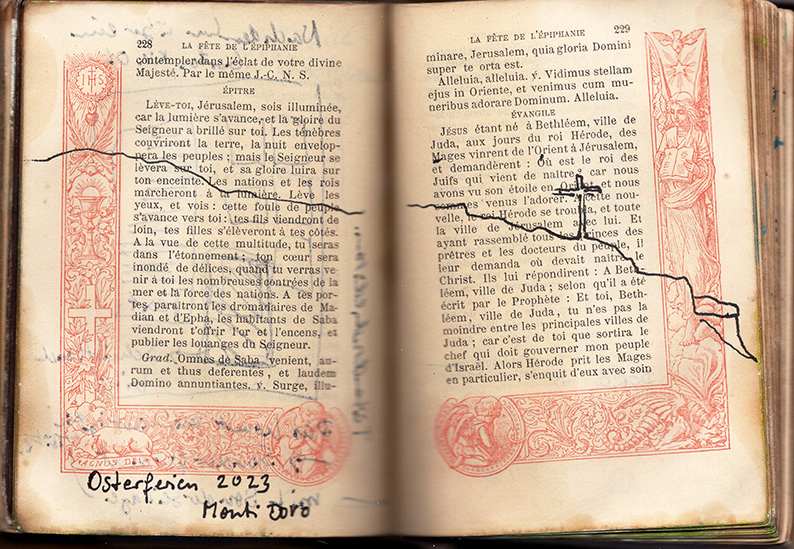 228
LA FÊTE DE L'ÉPIPHANIE
contempler dans l'éclat de votre divine
Majesté. Par le même J.-C. N. S.
ÉPITRE
LÈVE-TOI, Jérusalem, sois illuminée,
car la lumière s'avance, et la gloire du
Seigneur a brillé sur toi. Les ténèbres
couvriront la terre, la nuit envelop-
pera les peuples ; mais le Seigneur se
lèvera sur toi, et sa gloire luira sur
ton enceinte. Les nations et les rois
marcheront à ta lumière. Lève les
yeux, et vois : cette foule de peuples
s'avance vers toi : tes fils viendront de
loin, tes filles s'élèveront à tes côtés.
A la vue de cette multitude, tu seras
dans l'étonnement ; ton cœur sera
inondé de délices, quand tu verras ve-
nir à toi les nombreuses contrées de la
mer et la force des nations. A tes por-
tes paraîtront les dromadaires de Ma-
dian et d'Epha, les habitants de Saba
viendront t'offrir l'or et l'encens, et
publier les louanges du Seigneur.
Grad. Omnes de Saba venient, au-
rum et thus deferentes, et laudem
Domino annuntiantes. ℣. Surge, illu-
IHS
AGNUS DEI
Osterferien 2023
Monti Doro
229
LA FÊTE DE L'ÉPIPHANIE
minare, Jerusalem, quia gloria Domini
super te orta est.
Alleluia, alleluia. ℣. Vidimus stellam
ejus in Oriente, et venimus cum mu-
neribus adorare Dominum. Alleluia.
ÉVANGILE
Jésus étant né à Bethléem, ville de
Juda, aux jours du roi Hérode, des
Mages vinrent de l'Orient à Jérusalem,
et demandèrent : Où est le roi des
Juifs qui vient de naître, car nous
avons vu son étoile en Orient, et nous
sommes venus l'adorer. A cette nou-
velle, le roi Hérode se troubla, et toute
la ville de Jérusalem avec lui. Et
ayant rassemblé tous les princes des
prêtres et les docteurs du peuple, il
leur demanda où devait naître le
Christ. Ils lui répondirent : A Beth-
léem, ville de Juda ; selon qu'il a été
écrit par le Prophète : Et toi, Beth-
léem, ville de Juda, tu n'es pas la
moindre entre les principales villes de
Juda ; car c'est de toi que sortira le
chef qui doit gouverner mon peuple
d'Israël. Alors Hérode prit les Mages
en particulier, s'enquit d'eux avec soin